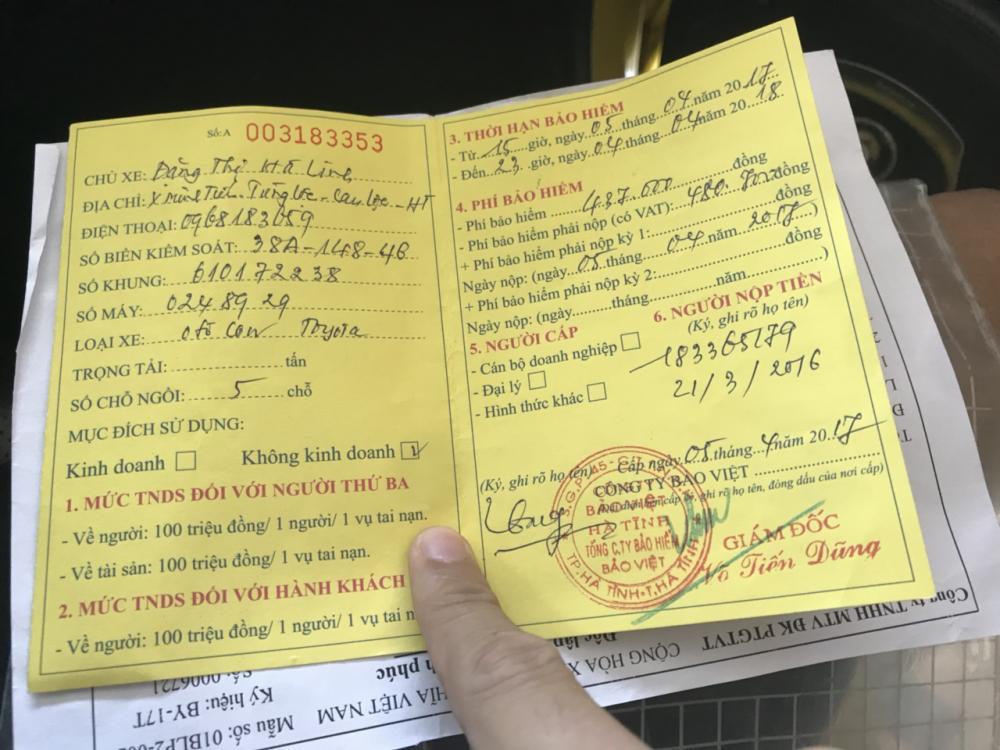 Số: A 003183353
CHỦ XE: Đăng Thị Hà Linh
ĐỊA CHỈ: X Tùng Lộc - Can Lộc - HT
ĐIỆN THOẠI: 0968183059
SỐ BIỂN KIỂM SOÁT: 38A-148-46
SỐ KHUNG: 610172238
SỐ MÁY: 0248929
LOẠI XE: Ô tô con Toyota
TRỌNG TẢI: tấn
SỐ CHỖ NGỒI: 5 chỗ
MỤC ĐÍCH SỬ DỤNG:
Kinh doanh Không kinh doanh
1. MỨC TNDS ĐỐI VỚI NGƯỜI THỨ BA
- Về người: 100 triệu đồng/ 1 người/ 1 vụ tai nạn.
- Về tài sản: 100 triệu đồng/ 1 vụ tai nạn.
2. MỨC TNDS ĐỐI VỚI HÀNH KHÁCH
- Về người: 100 triệu đồng/ 1 người/ 1 vụ tai n
3. THỜI HẠN BẢO HIỂM
- Từ 15 giờ, ngày 05 tháng 04 năm 2017
- Đến 23 giờ, ngày 04 tháng 04 năm 2018
4. PHÍ BẢO HIỂM
- Phí bảo hiểm 437.000 đồng
- Phí bảo hiểm phải nộp (có VAT): 480.700 đồng
+ Phí bảo hiểm phải nộp kỳ 1: đồng
Ngày nộp: (ngày 05 tháng 04 năm 2017)
+ Phí bảo hiểm phải nộp kỳ 2: đồng
Ngày nộp: (ngày tháng năm )
5. NGƯỜI CẤP
- Cán bộ doanh nghiệp
- Đại lý
- Hình thức khác
6. NGƯỜI NỘP TIỀN
(Ký, ghi rõ họ tên)
183365179
21/3/2016
(Ký, ghi rõ họ tên) Cấp ngày 05 tháng 4 năm 2017
CÔNG TY BẢO VIỆT
ghi rõ họ tên, đóng dấu của nơi cấp)
BẢO VIỆT
HÀ TĨNH
TỔNG C.TY BẢO HIỂM
BẢO VIỆT
TP.HÀ TĨNH-T.HÀ TĨNH
GIÁM ĐỐC
Võ Tiến Dũng
Công ty TNHH MTV ĐK PTGTVT
CỘNG HÒA X
HĨA VIỆT NAM
Độc lập
h phúc
Mẫu số: 01BLP2-0
Ký hiệu: BY-17T
Số: 0006721